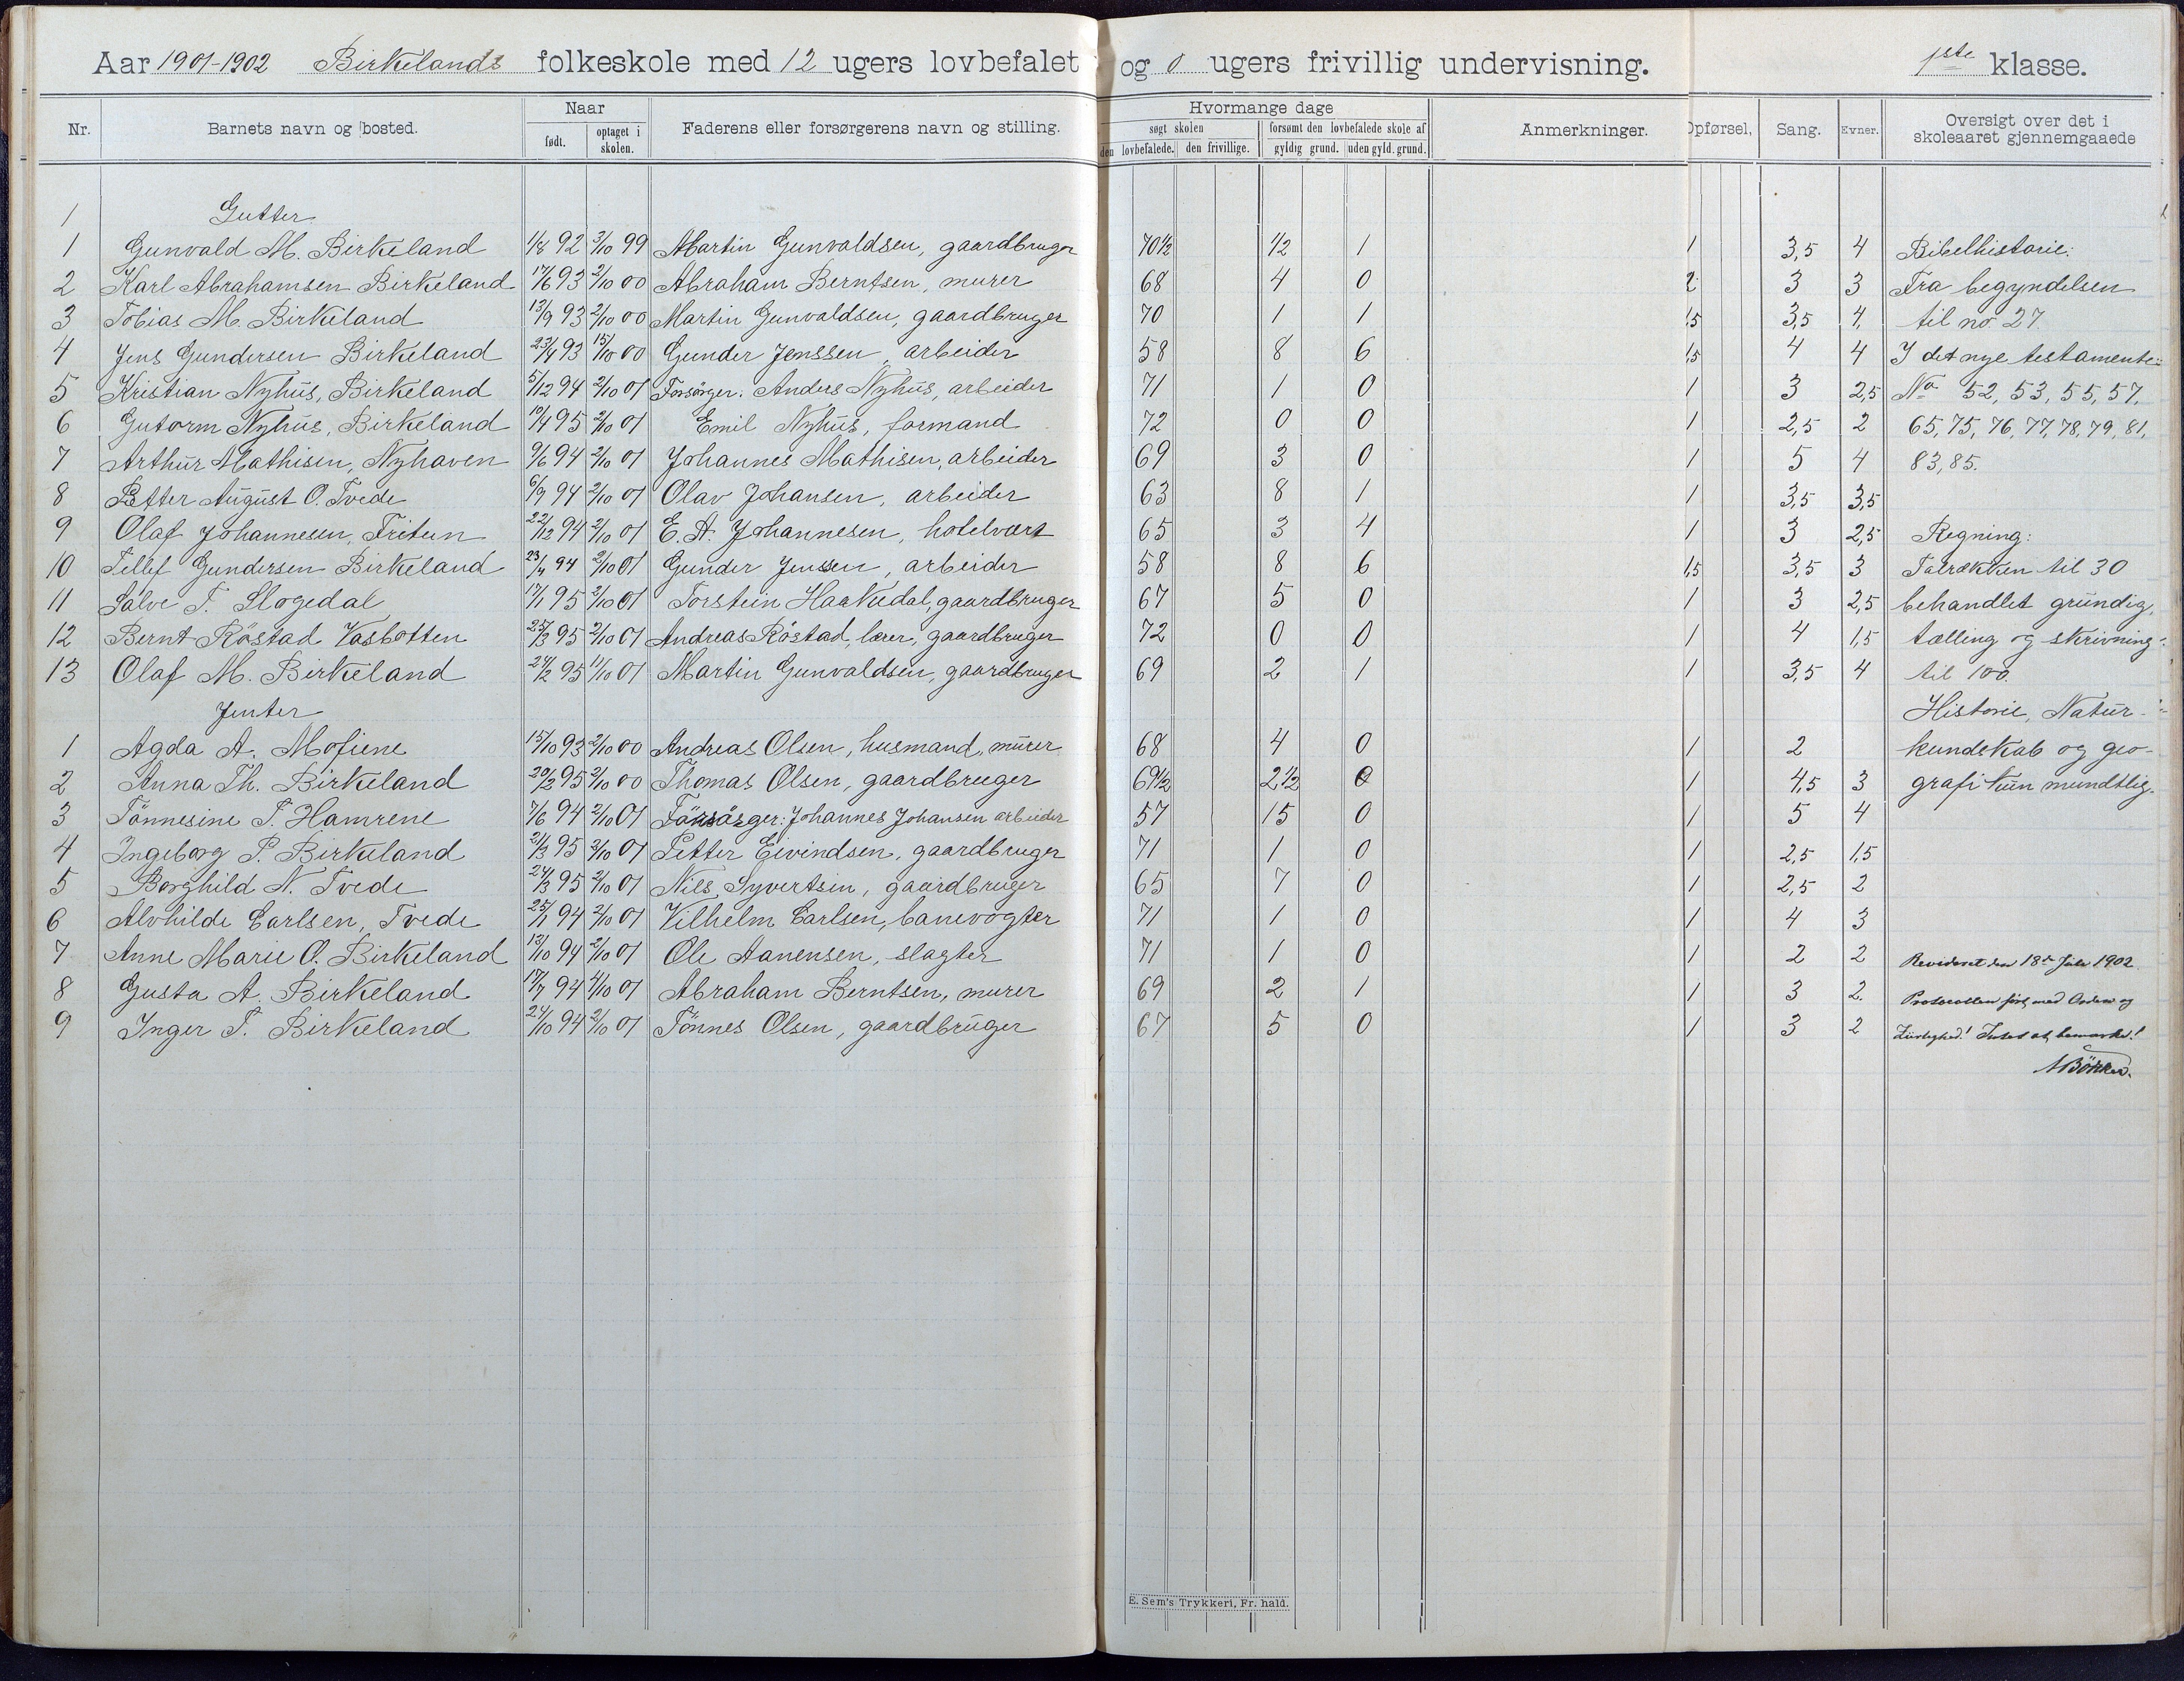 Aar 1901-1902 Birkelands folkeskole med 12 ugers lovbefalet og 0 ugers frivillig undervisning. 1ste klasse.
Nr. Barnets navn og bosted. Naar født. optaget i skolen. Faderens eller forsørgerens navn og stilling. Hvormange dage søgt skolen den lovbefalede. den frivillige. forsømt den lovbefalede skole af gyldig grund. uden gyld. grund. Anmerkninger. Opførsel, Sang. Evner. Oversigt over det i skoleaaret gjennemgaaede
1 Gutter
1 Gunvald M. Birkeland 1/8 92 3/10 99 Martin Gunvaldsen, gaardbruger 70 1/2 1/2 1 1 3,5 4 Bibelhistorie:
2 Karl Abrahamsen Birkeland 17/6 93 2/10 00 Abraham Berntsen, murer 68 4 0 2 3 3 Fra begyndelsen
3 Tobias M. Birkeland 13/9 93 2/10 00 Martin Gunvaldsen, gaardbruger 70 1 1 1,5 3,5 4, til no 27.
4 Jens Gundersen Birkeland 23/4 93 15/10 00 Gunder Jenssen, arbeider 58 8 6 1,5 4 4 I det nye testamente:
5 Kristian Nyhus, Birkeland 5/12 94 2/10 01 Forsörger: Anders Nyhus, arbeider 71 1 0 1 3 2,5 No 52, 53, 55, 57,
6 Gutorm Nyhus, Birkeland 10/4 95 2/10 01 Emil Nyhus, formand 72 0 0 1 2,5 2 65, 75, 76, 77, 78, 79, 81,
7 Arthur Mathisen, Nyhaven 9/6 94 2/10 01 Johannes Mathisen, arbeider 69 3 0 1 5 4 83, 85.
8 Petter August O. Tvede 6/9 94 2/10 01 Olav Johansen, arbeider 63 8 1 1 3,5 3,5
9 Olaf Johannesen, Fritun 22/12 94 2/10 01 E. A. Johannesen, hotelvært 65 3 4 1 3 2,5 Regning:
10 Tellef Gundersen Birkeland 23/4 94 2/10 01 Gunder Jenssen, arbeider 58 8 6 1,5 3,5 3 Talrækken til 30
11 Salve T. Slogedal 17/1 95 2/10 01 Torstein Haakedal, gaardbruger 67 5 0 1 3 2,5 behandlet grundig,
12 Bernt Röstad Vasbotten 25/3 95 2/10 01 Andreas Röstad, lærer, gaardbruger 72 0 0 1 4 1,5 tælling og skrivning
13 Olaf M. Birkeland 24/2 95 11/10 01 Martin Gunvaldsen, gaardbruger 69 2 1 1 3,5 4 til 100.
Jenter Historie, Natur-
1 Agda A. Mofiene 15/10 93 2/10 00 Andreas Olsen, husmand, murer 68 4 0 1 2 kundskab og geo-
2 Anna Th. Birkeland 20/2 95 2/10 00 Thomas Olsen, gaardbruger 69 1/2 2 1/2 0 1 4,5 3 grafi kun mundtlig.
3 Tönnesine T. Hamrene 7/6 94 2/10 01 Forsörger: Johannes Johansen arbeider 57 15 0 1 5 4
4 Ingeborg P. Birkeland 21/3 95 3/10 01 Petter Eivindsen, gaardbruger 71 1 0 1 2,5 1,5
5 Borghild N. Tvede 24/3 95 2/10 01 Nils Syvertsen, gaardbruger 65 7 0 1 2,5 2
6 Alvhilde Carlsen, Tvede 25/1 94 2/10 01 Vilhelm Carlsen, banevogter 71 1 0 1 4 3
7 Anne Marie O. Birkeland 13/10 94 2/10 01 Ole Aanensen, slagter 71 1 0 1 2 2 Revideret den 18de Juli 1902
8 Gusta A. Birkeland 17/7 94 4/10 01 Abraham Berntsen, murer 69 2 1 1 3 2. Protocollen ført med Orden og
9 Inger T. Birkeland 24/10 94 2/10 01 Tönnes Olsen, gaardbruger 67 5 0 1 3 2 Intet at bemærke!
E. Sem's Trykkeri, Fr. hald.